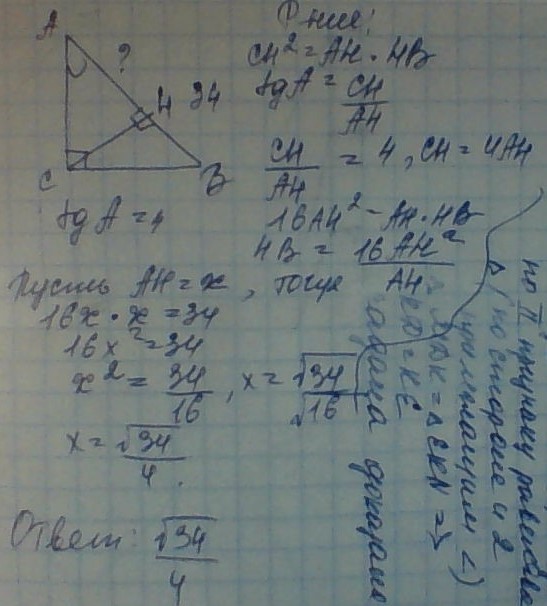 A
?
H 34
C
B
tg A = 4
Р-ние:
CH² = AH · HB
tg A = CH/AH
CH/AH = 4, CH = 4AH
16AH² = AH · HB
HB = 16AH²/AH
Пусть AH = x, тогда
16x · x = 34
16x² = 34
x² = 34/16, x = √34/√16
x = √34/4.
Ответ: √34/4
по II признаку равенства
Δ (по стороне и 2
прилежащим <)
= Δ EKN =>
= KE
задача доказана